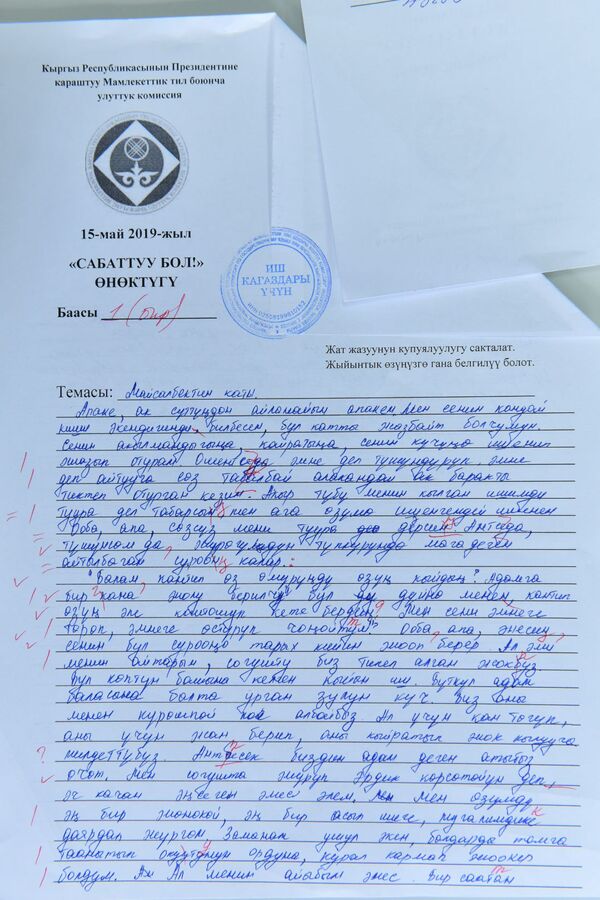 Кыргыз Республикасынын Президентине
караштуу Мамлекеттик тил боюнча
улуттук комиссия
15-май 2019-жыл
«САБАТТУУ БОЛ!»
ӨНӨКТҮГҮ
Баасы 1 (бир)
ИШ
КАГАЗДАРЫ
ҮЧҮН
Жат жазуунун купуялуулугу сакталат.
Жыйынтык өзүңүзгө гана белгилүү болот.
Темасы: Майсалбектин каты.
Апаке, ак сүтүңдөн айланайын апакем. Мен сенин кандай
киши экендигиңди билбесем, бул катты жазбайт болчумун.
Сенин акылмандыгыңа, кайратыңа, сенин күчүңө ишенип
жазып отурам. эмне деп түшүндүрүп, эмне
деп айтууга сөз таппай алакандай ак баракты
тиктеп отурган кезим. Акыр түбү менин кылган ишимди
туура деп табарсың мен ага өзүмө ишенгендей ишенем
Ооба, апа, сөзсүз мени туура дерсиң.
түшүнсөм да, түпкүрүндө мага деген
айтылбаган суробоң калар:
"Балам, кантип өз өмүрүңдү өзүң койдоң? Адамга
бир кана жолу берилчү бул дүйнө менен кантип
өзүң эле коштошуп кете бердең Мен сени эмнеге
төрөп, эмнеге өстүрүп чоңойттум" Ооба, апа, энесиң,
сенин бул сурооңо тарых кийин жооп берер. Ал эми
менин айтарым, согушту биз тилеп алган жокпуз
Бул көптүн башына келген кыйын иш. Бүткүл адам
баласына балта урган зулум күч. Биз аны
менен күрөшпөй кое албайбыз Ал үчүн кан төгүп,
аны үчүн жан берип, аны кыйратып жок кылууга
милдеттүүбүз. Антпесек биздин адам деген атыбыз
өчөт. Мен согушта жүрүп Эрдик көрсөтөйүн деп,
эч качан эңсеген эмес элем. Мен өзүмдү
эң бир жөнөкөй, эң бир асыл ишке, мугалимдикке
даярдап жүргөм. Заманак ушул экен, балдарга тамга
таанытып окуутунун ордуна, курал кармап жоокер
болдум. Ал менин айыбым эмес. Бир саптан